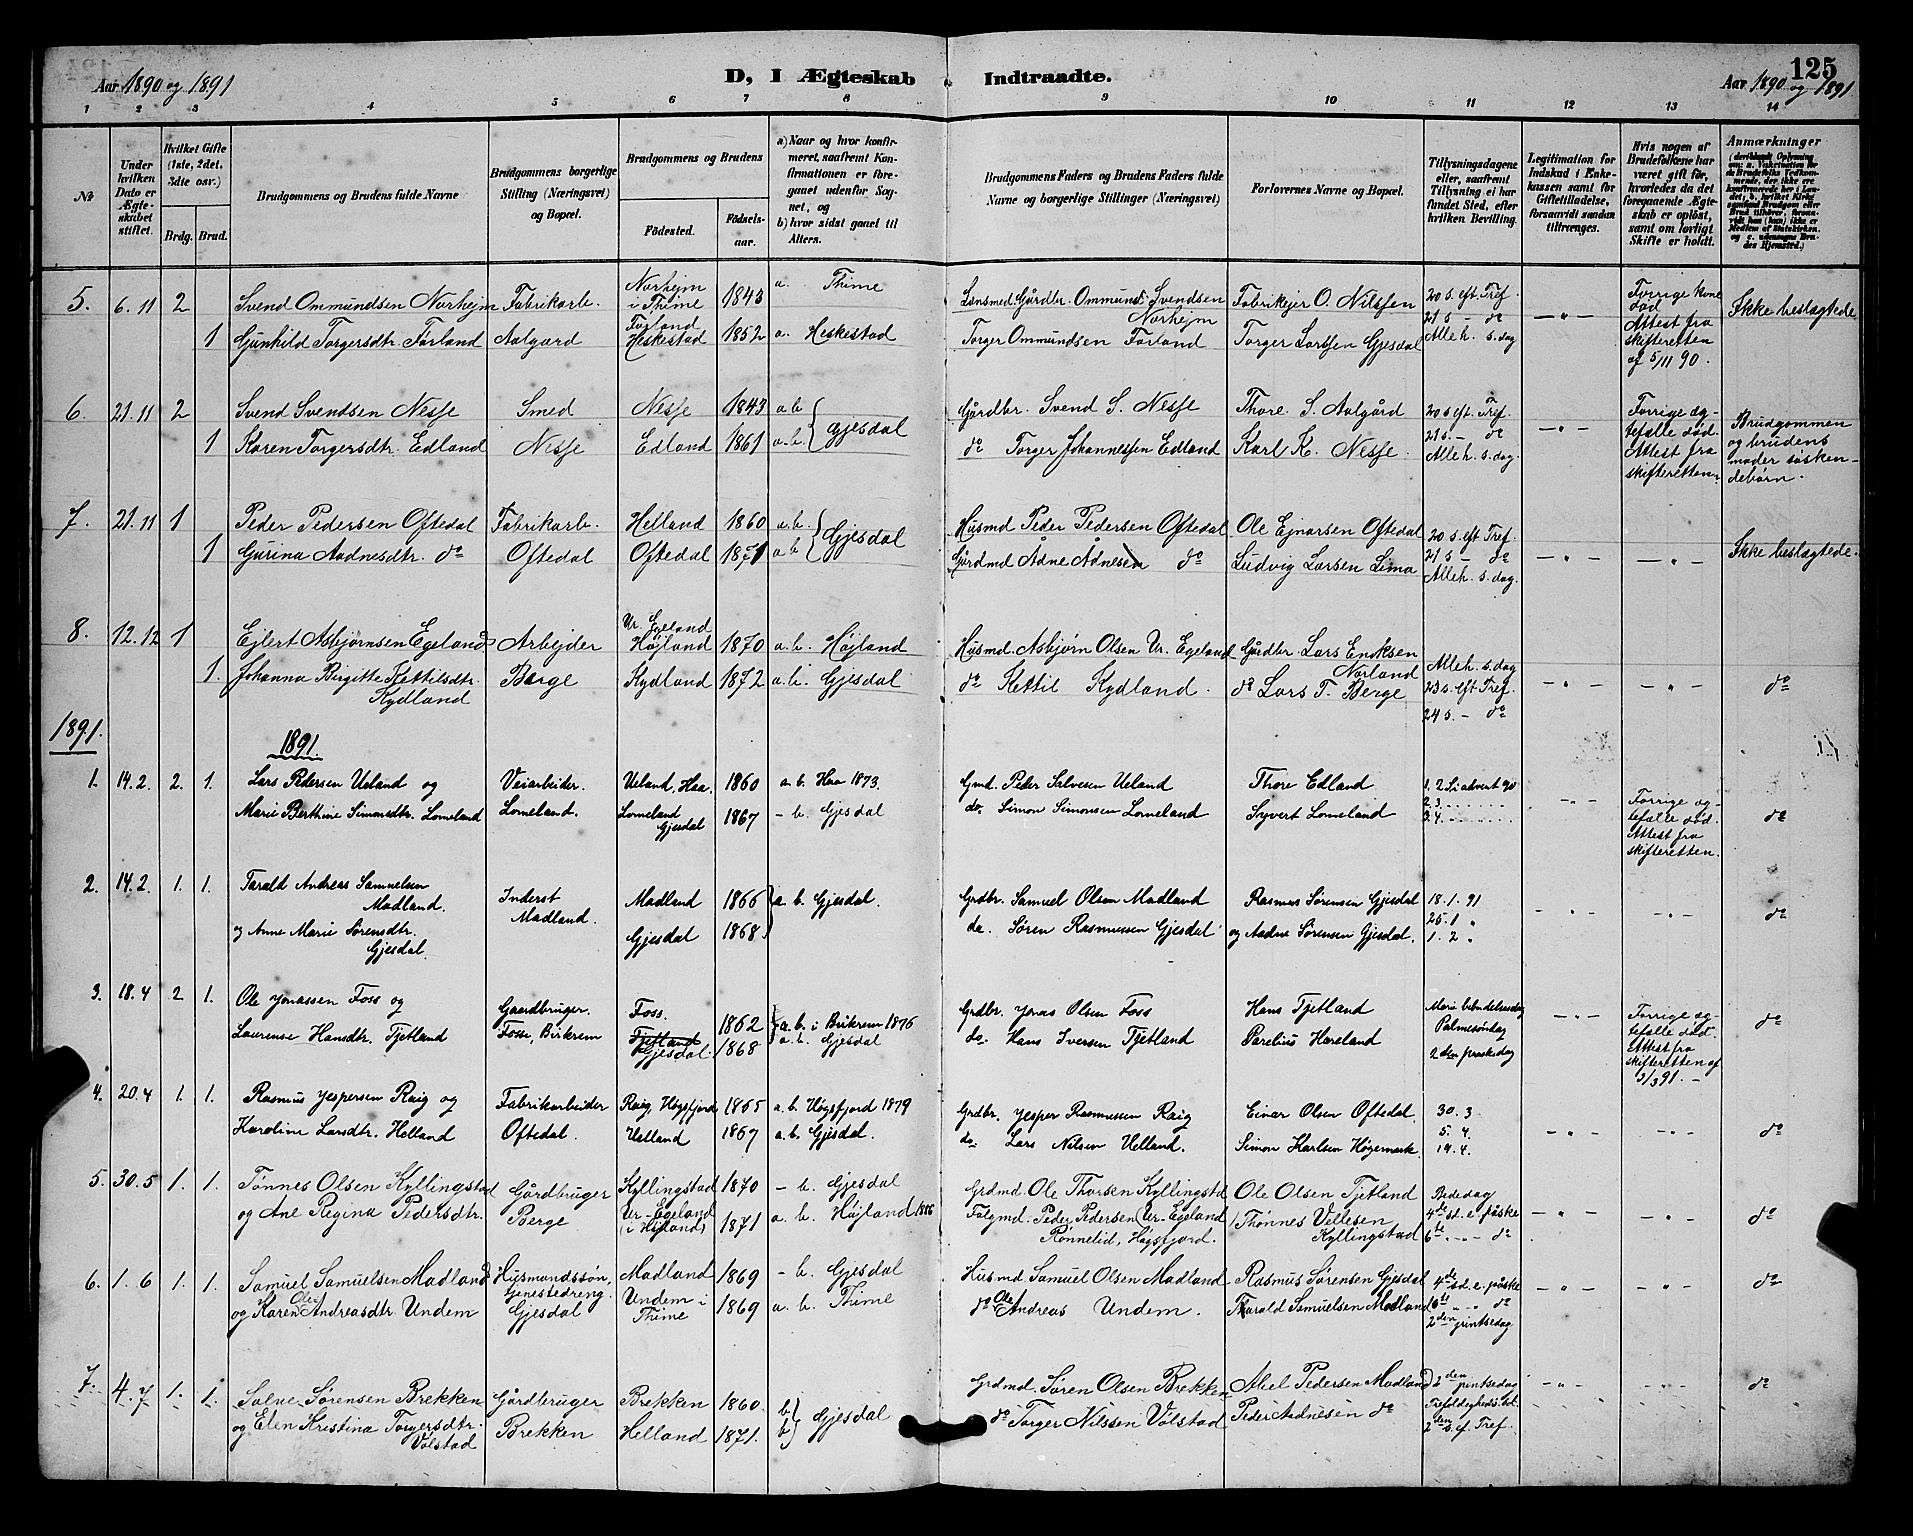 Aar 1890 og 1891
D, I Ægteskab Indtraadte.
125
Aar 1890 og 1891.
1 2 3 4 5 6 7 8 9 10 11 12 13 14
№
Under hvilken Dato er Ægteskabet stiftet.
Hvilket Gifte (1ste, 2det, 3die osv.)
Brdg. Brud.
Brudgommens og Brudens fulde Navne
Brudgommens borgerlige Stilling (Næringsvei) og Bopæl.
Brudgommens og Brudens
Fødested. Fødselsaar.
a) Naar og hvor konfirmeret, saafremt Konfirmationen er foregaaet udenfor Sognet, og
b) hvor sidst gaaet til Alters.
Brudgommens Faders og Brudens Faders fulde Navne og borgerlige Stillinger (Næringsvei)
Forlovernes Navne og Bopæl.
Tillysningsdagene eller, saafremt Tillysning ei har fundet Sted, efter hvilken Bevilling.
Legitimation for Indskud i Enkekassen samt for Giftetilladelse, forsaavidt saadan tiltrænges.
Hvis nogen af Brudefolkene har været gift før, hvorledes da det foregaaende Ægteskab er opløst, samt om lovligt Skifte er holdt.
Anmærkninger
5. 6.11 2 Svend Ommundsen Norhejm Fabrikarb. Norhejm i Thime 1843 a. Thime Lensmed. Gårdbr. Ommund Svendsen Norhejm Fabrikejer O. Nilssen 20 s. eft. Tref. — " — Forrige Kone død Ikke beslægtede
1 Gunhild Torgersdtr. Førland Aalgard Førland Heskestad 1852 a. Heskestad Torger Ommundsen Førland Torger Larssen Gjesdal 21 s. — do Alleh. s. dag Attest fra skifteretten af 5/11 90.
6. 21.11 2 Svend Svendsen Nesse Smed Nesse 1843 a b Gjesdal Gårdbr. Svend S. Nesse Thore S. Aalgård 20 s. eft. Tref. — " — Forrige ægtefælle død. Brudgommen og brudens
1 Karen Torgersdtr. Edland Nesse Edland 1861 a. b. do Torger Johannessen Edland Karl K. Nesse. 21 s. — do Alleh. s. dag. Attest fra skifteretten moder søskendebørn.
7. 21.11 1 Peder Pedersen Oftedal Fabrikarb. Helland 1860 a b. Gjesdal Husmd Peder Pedersen Oftedal Ole Ejnarsen Oftedal 20 s. eft Tref. — " — — " — Ikke beslægtede.
1 Gurina Aadnesdtr. do Oftedal Oftedal 1871 a b Gårdmd Ådne Ådnesen do Ludvig Larsen Lima 21 s — do Alleh. s. dag.
8. 12.12 1 Ejlert Asbjørnsen Egeland Arbejder Ur. Egeland Højland 1870 a. b. Højland Husmd. Asbjørn Olsen Ur. Egeland Gårdbr. Lars Eriksen Norland Alleh. s. dag — " — — " — do
1. Johanna Birgitte Kettilsdtr. Kydland Berge Kydland 1872 a. b. Gjesdal do Kettil Kydland. do Lars T. Berge 23 s. eft Tref. 24 s. — do
1891.
1891.
1. 14.2. 2. 1. Lars Pedersen Ueland og Veiarbeider. Ueland, Haa. 1860 a. b. Haa 1873. Gmd. Peder Salvesen Ueland Thore Edland 1. 2 S. i advent 90 — " — Forrige ægtefælle død.
Marie Berthine Simonsdtr. Lomeland Lomeland. Lomeland Gjesdal 1867 - b. Gjesdal do. Simon Simonsen Lomeland Syvert Lomeland Attest fra skifteretten. do
2. 14.2. 1. 1. Tarald Andreas Samuelsen Madland. Inderst Madland. Madland 1866 a. b. Gjesdal. Grdbr. Samuel Olsen Madland Rasmus Sørensen Gjesdal 18. 1. 91 — " — — " — do
og Anne Marie Sørensdtr. Gjesdal. Gjesdal 1868 do. Søren Rasmussen Gjesdal og Aadne Sørensen Gjesdal. 25. 1 " 1. 2 "
3. 18.4 2 1. Ole Jonassen Foss og Gaardbruger. Foss. 1862 a. b. i Birkrem 1876 Grdbr. Jonas Olsen Foss Hans Tjetland Marie bebudelsesdag — " — Forrige ægtefælle død. do
Laurense Hansdtr. Tjetland Fosse, Birkrem Tjetland Gjesdal. 1868 a. b. Gjesdal do. Hans Iversen Tjetland Parelius Hareland Palmesøndag 2den påskedag Attest fra skifteretten af 3/3 91. —
4. 20.4 1. 1. Rasmus Jespersen Raig og Fabrikarbeider Raig, Høgsfjord 1865 a. b. Høgsfjord 1879 Grdbr. Jesper Rasmussen Raig Einar Olsen Oftedal 30. 3 — " — — " — do
Karoline Larsdtr. Helland Oftedal. Helland 1867 a. b. Gjesdal. do. Lars Nilsen Helland. Simon Karlsen Høgemark. 5. 4. 19. 4.
5. 30.5 1. 1. Tønnes Olsen Kyllingstad Gårdbruger Kyllingstad 1870 - b. Gjesdal Grdmd. Ole Thorsen Kyllingstd Ole Olsen Tjetland Bededag — " — — " — do
og Ane Regina Pedersdtr. Berge Ur-Egeland (i Højland) 1871 a. b. Højland 1886 Følgmd. Peder Pedersen (Ur. Egeland Rønnelid, Høgsfjord. Thønnes Vellesen Kyllingstad 4de sd. e. påske 6te — do
6. 1. 6 1. 1. Samuel Samuelsen Madland Husmandssøn, Madland 1869 - b. Gjesdal Husmd Samuel Olsen Madland Rasmus Sørensen Gjesdal 4de sd. e. påske — " — — " — do
og Karen Ole Andreasdtr. Undem Tjenestedreng. Gjesdal Undem i Thime 1869 a. b. Thime do Ole Andreas Undem. Tarald Samuelsen Madland 6te " " do 2den pintsedag
7. 4. 7 1. 1. Salve Sørensen Brekken Gårdbruger Brekken 1860. b Gjesdal Grdmd. Søren Olsen Brekken Abel Pedersen Madland 2den pintsedag — " — — " — do
og Elen Kristina Torgersdtr. Vølstad Brekken Helland 1871. b do Torger Nilssen Vølstad Peder Aadnesen do Trefoldigheds s. 2den s. ef. Tref.